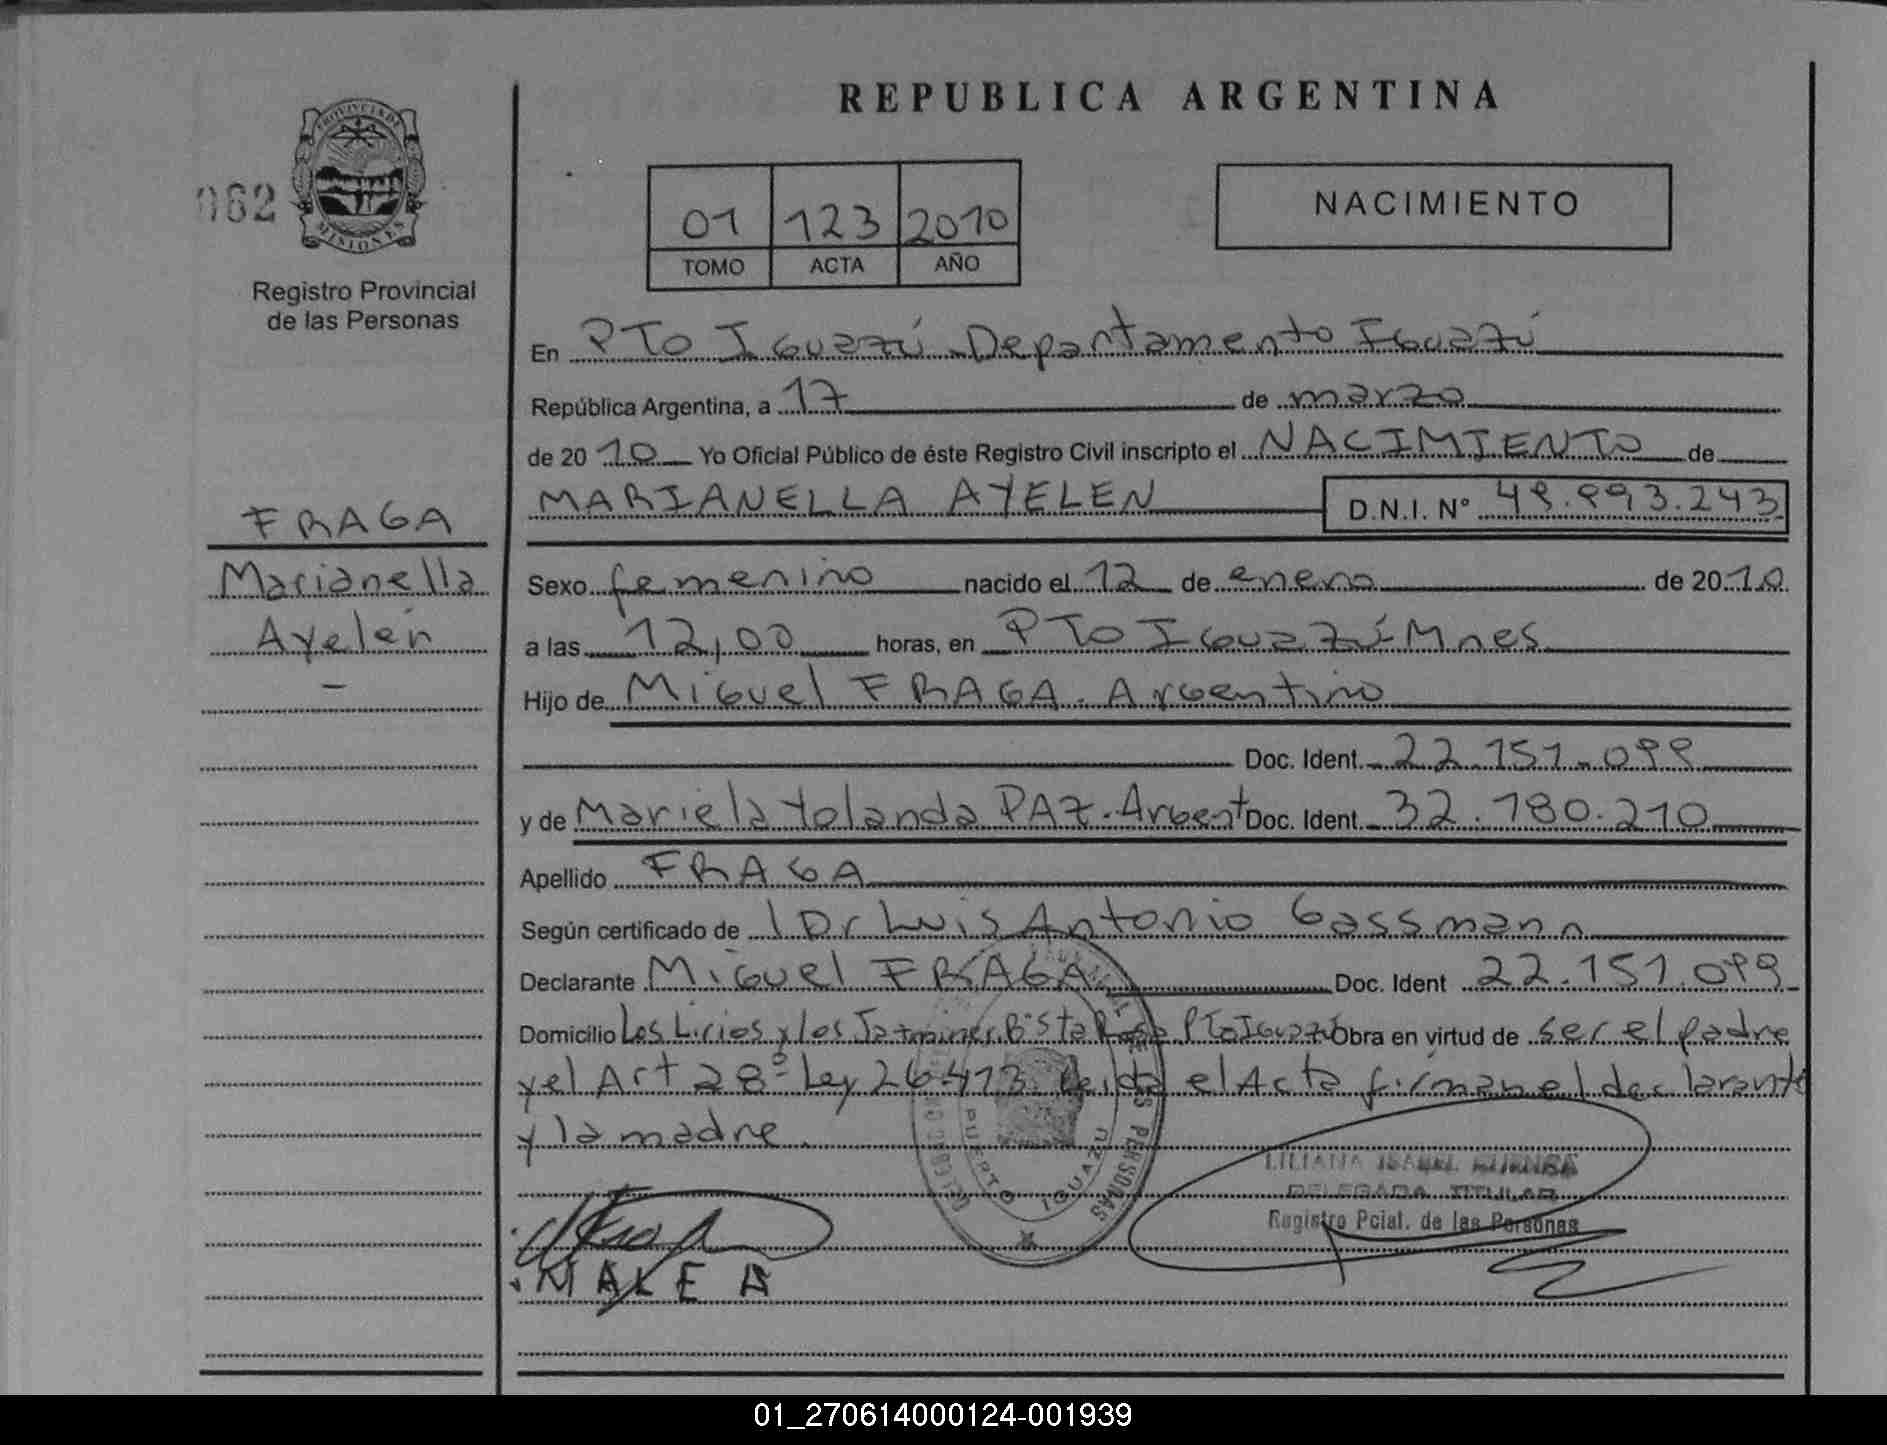 REPUBLICA ARGENTINA
PROVINCIA DE
MISIONES
062
Registro Provincial
de las Personas
01 123 2010
TOMO ACTA AÑO
NACIMIENTO
En PTO Iguazú Departamento Iguazú
República Argentina, a 17 de marzo
de 2010 Yo Oficial Público de éste Registro Civil inscripto el NACIMIENTO de
MARIANELLA AYELEN D.N.I. Nº 49.993.243
FRAGA
Marianella
Ayelén
Sexo femenino nacido el 12 de enero de 2010
a las 12,00 horas, en PTO Iguazú-Mnes
Hijo de Miguel FRAGA. Argentino
Doc. Ident. 22.151.099
y de Mariela Yolanda PAZ. Argent Doc. Ident 32.780.210
Apellido FRAGA
Según certificado de l Dr Luis Antonio Gassmann
Declarante Miguel FRAGA Doc. Ident 22.151.099
Domicilio Los Lirios y los Jazmines Bº Sta Rosa PTO Iguazú Obra en virtud de ser el padre
y el Art 28º Ley 26.413. Leída el Acta firman el declarante
y la madre.
PUERTO IGUAZU
LILIANA ISABEL
DELEGADA TITULAR
Registro Pcial. de las Personas
01_270614000124-001939